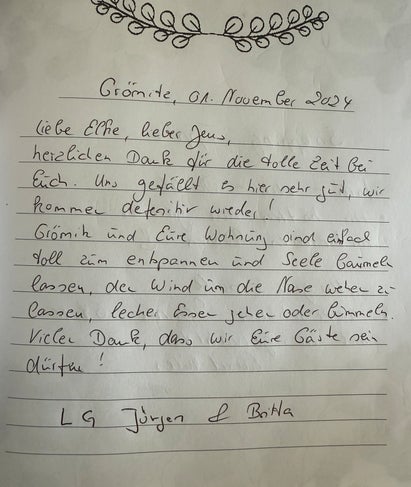 Grömitz, 01. November 2024
Liebe Elfie, lieber Jens,
herzlichen Dank für die tolle Zeit bei
Euch. Uns gefällt es hier sehr gut, wir
kommen definitiv wieder!
Grömitz und Eure Wohnung sind einfach
toll zum entspannen und Seele baumeln
lassen, den Wind um die Nase wehen zu
lassen, lecker Essen gehen oder bummeln.
Vielen Dank, dass wir Eure Gäste sein
dürfen!
LG Jürgen & Britta